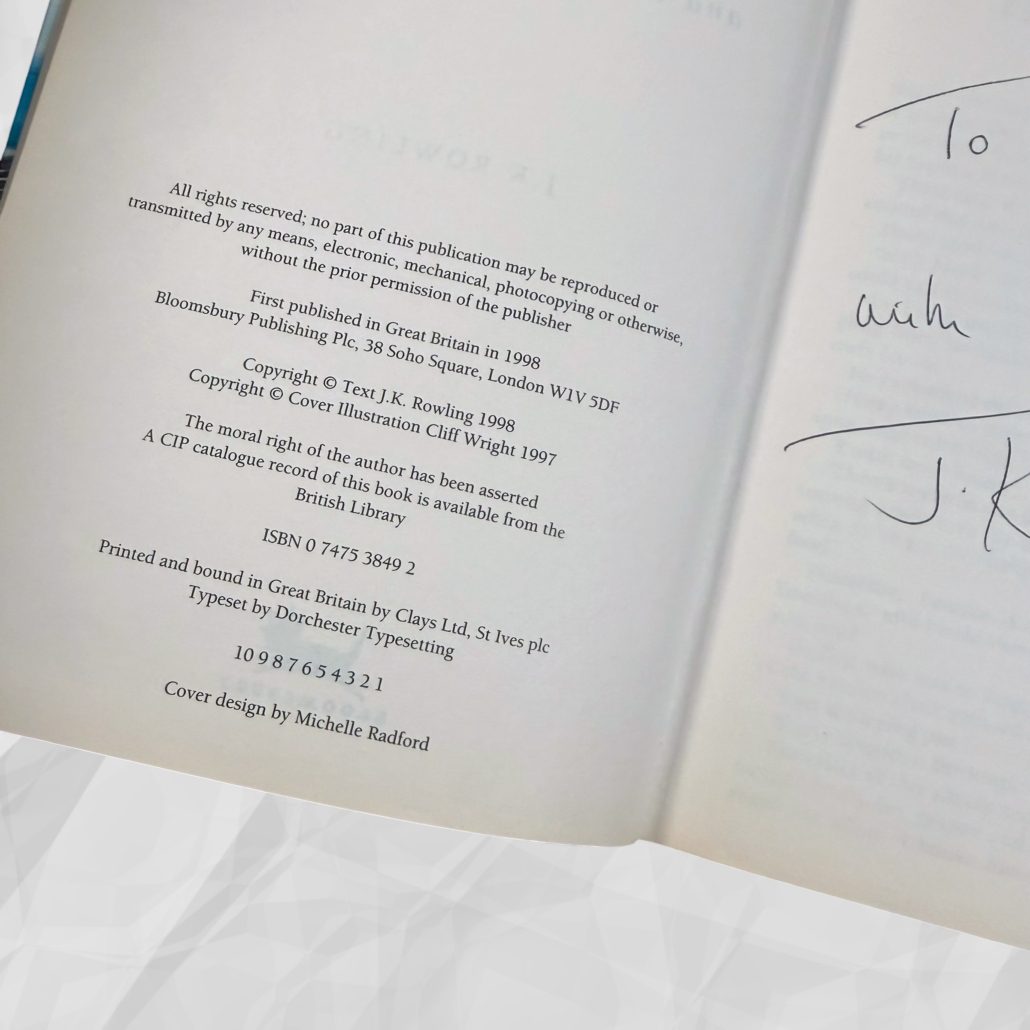 All rights reserved; no part of this publication may be reproduced or
transmitted by any means, electronic, mechanical, photocopying or otherwise,
without the prior permission of the publisher
First published in Great Britain in 1998
Bloomsbury Publishing Plc, 38 Soho Square, London W1V 5DF
Copyright © Text J.K. Rowling 1998
Copyright © Cover Illustration Cliff Wright 1997
The moral right of the author has been asserted
A CIP catalogue record of this book is available from the
British Library
ISBN 0 7475 3849 2
Printed and bound in Great Britain by Clays Ltd, St Ives plc
Typeset by Dorchester Typesetting
10 9 8 7 6 5 4 3 2 1
Cover design by Michelle Radford
To
with
J.K